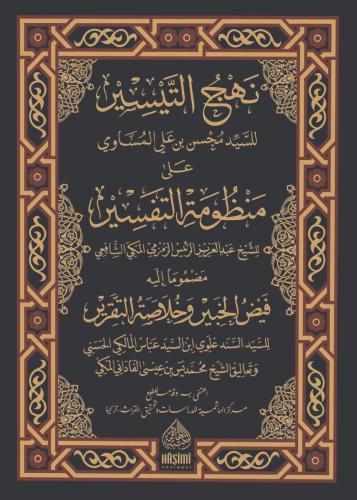 نهج التيسير
للسيد محسن بن علي المساوي
على
منظومة التفسير
للشيخ عبد العزيز الرئيس الزمزمي المكي الشافعي
مضموما إليه
فيض الخبير وخلاصة التقرير
للسيد السند علوي ابن السيد عباس المالكي الحسني
وتعاليق الشيخ محمد يس بن عيسى الفاداني المكي
اعتنى به وقدمه للطبع
مركز الهاشمية للدراسات وتحقيق التراث، تركيا
HÂŞİMİ
YAYINEVİ